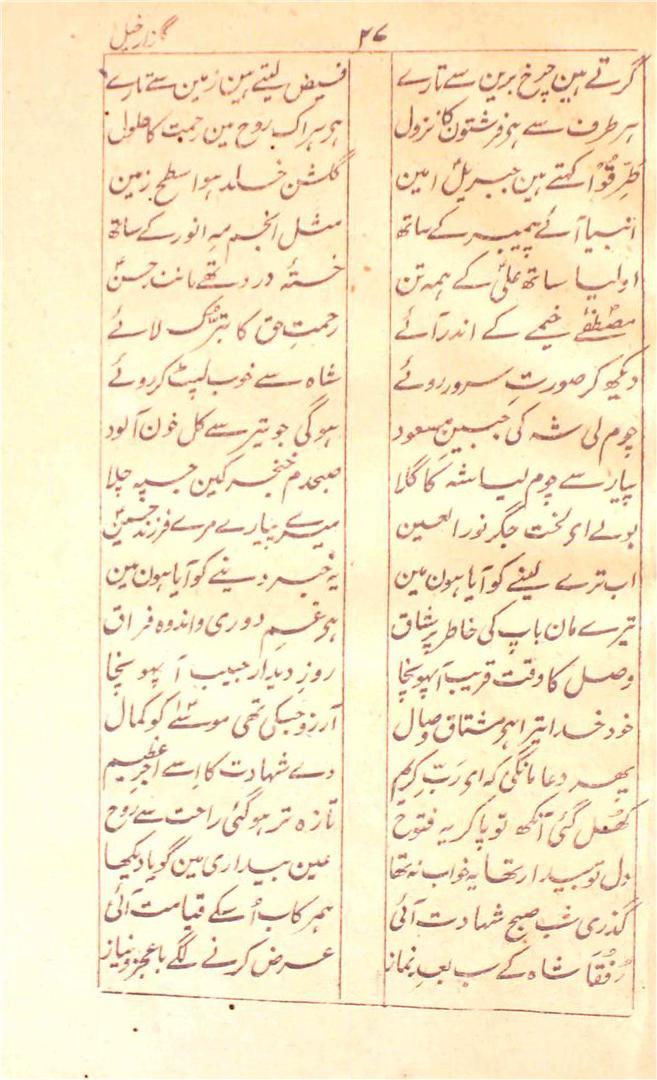 ۲۷
گلزار خلیل
گرتے ہین چرخ برین سے تارے
فیض لیتے ہین زمین سے تارے
ہر طرف سے ہو فرشتون کا نزول
ہو ہر اک روح مین رحمت کا حلول
طَرِّقُوْا کہتے ہین جبریلؑ امین
گلشن خلد ہوا سطح زمین
انبیا آئے پیمبر کے ساتھ
مثل انجم مہ انور کے ساتھ
اولیا ساتھ علیؑ کے ہمہ تن
خستۂ درد تھے مانند حسنؑ
مصطفےٰؐ خیمے کے اندر آئے
رحمتِ حق کا تبرُّک لائے
دیکھ کر صورتِ سرور روئے
شاہ سے خوب لپٹ کر روئے
چوم لی شہ کی جبینِ مسعود
ہوگی جو تیر سے کل خون آلود
پیار سے چوم لیا شہ کا گلا
صبحدم خنجر کین جسپہ چلا
بولے ای لخت جگر نور العین
میرے پیارے مرے فرزند حسینؑ
اب ترے لینے کو آیا ہون مین
یہ خبر دینے کو آیا ہون مین
تیرے مان باپ کی خاطر پر شاق
ہو غمِ دوری و اندوہ فراق
وصل کا وقت قریب آ پہونچا
روزِ دیدار حبیب آ پہونچا
خود خدا تیرا ہو مشتاق وصال
آرزو جسکی تھی موسےٰؑ کو کمال
پھر دعا مانگی کہ ای رَبِّ کریم
دے شہادت کا اِسے اجرِ عظیم
کھُل گئی آنکھ تو پا کر یہ فتوح
تازہ تر ہو گئی راحت سے روح
دل تو بیدار تھا یہ خواب نہ تھا
عین بیداری مین گویا دیکھا
گذری شب صبح شہادت آئی
ہمرکاب اُسکے قیامت آئی
رُفَقا شاہ کے سب بعدِ نماز
عرض کرنے لگے با عجز و نیاز